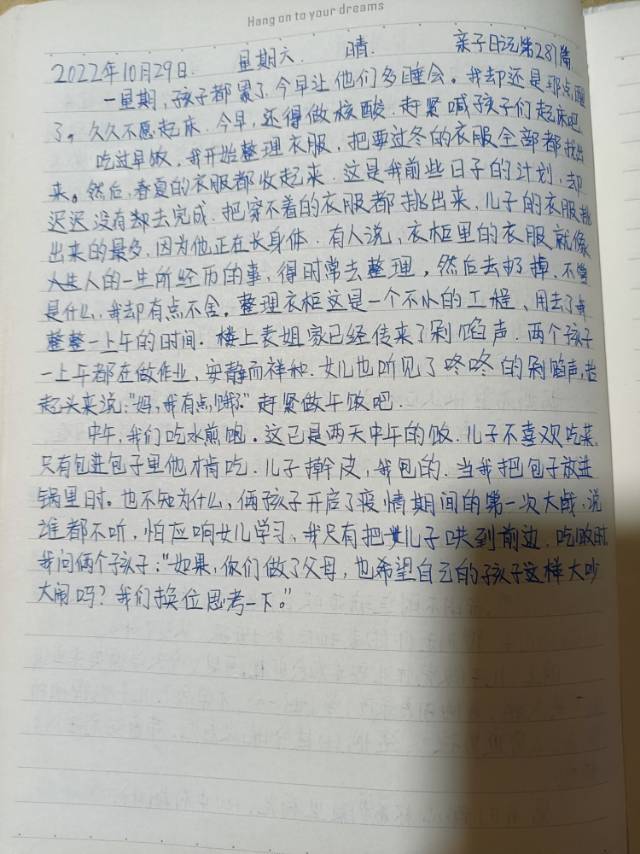 Hang on to your dreams
2022年10月29日. 星期六. 晴. 亲子日记第287篇
一星期,孩子都累了,今早让他们多睡会。我却还是那点醒
了。久久不愿起床.今早,还得做核酸.赶紧喊孩子们起床吧
吃过早饭,我开始整理衣服,把要过冬的衣服全部都找出
来。然后,春夏的衣服都收起来.这是我前些日子的计划,却
迟迟没有却去完成.把穿不着的衣服都挑出来,儿子的衣服挑
出来的最多,因为他正在长身体.有人说,衣柜里的衣服就像
人的一生所经历的事,得时常去整理,然后去扔掉.不管
是什么,我却有点不舍。整理衣柜这是一个不小的工程,用去了我
整整一上午的时间.楼上表姐家已经传来了剁馅声.两个孩子
一上午都在做作业,安静而祥和.女儿也听见了咚咚的剁馅声,抬
起头来说:“妈,我有点饿。”赶紧做午饭吧.
中午,我们吃水煎饱。这已是两天中午的饭.儿子不喜欢吃菜
只有包进包子里他才肯吃.儿子擀皮,我包的.当我把包子放进
锅里时。也不知为什么,俩孩子开启了疫情期间的第一次大战,说
谁都不听,怕应响女儿学习,我只有把儿子哄到前边.吃饭时
我问俩个孩子:“如果,你们做了父母,也希望自己的孩子这样大吵
大闹吗?我们换位思考一下。”